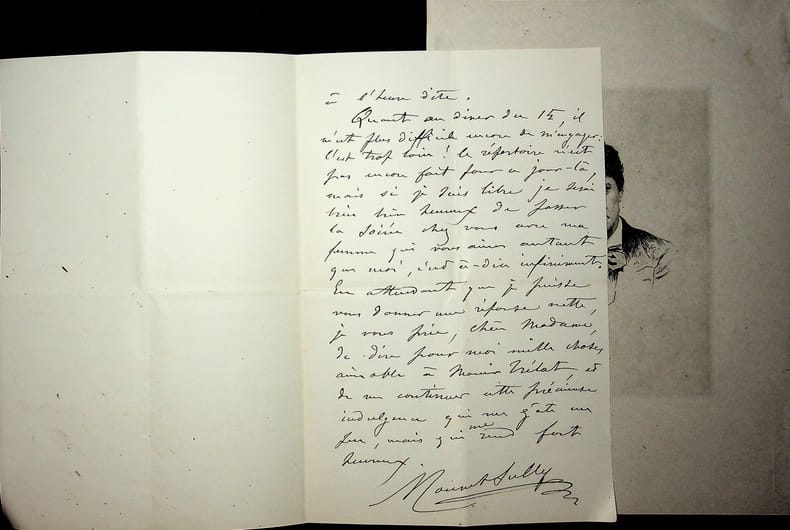 à l'heure dite.
Quant au diner du 12, il
m'est plus difficile encore de m'engager:
c'est trop loin! le répertoire n'est
pas encore fait pour ce jour-là,
mais si je suis libre je serai
très très heureux de passer
la soirée chez vous avec ma
femme qui vous aime autant
que moi, c'est-à-dire infiniment.
En attendant que je puisse
vous donner une réponse nette,
je vous prie, chère Madame,
de dire pour moi mille choses
aimable à Trélat, et
de me continuer cette précieuse
indulgence qui me gâte un
peu, mais qui me rend fort
heureux
Mounet Sully